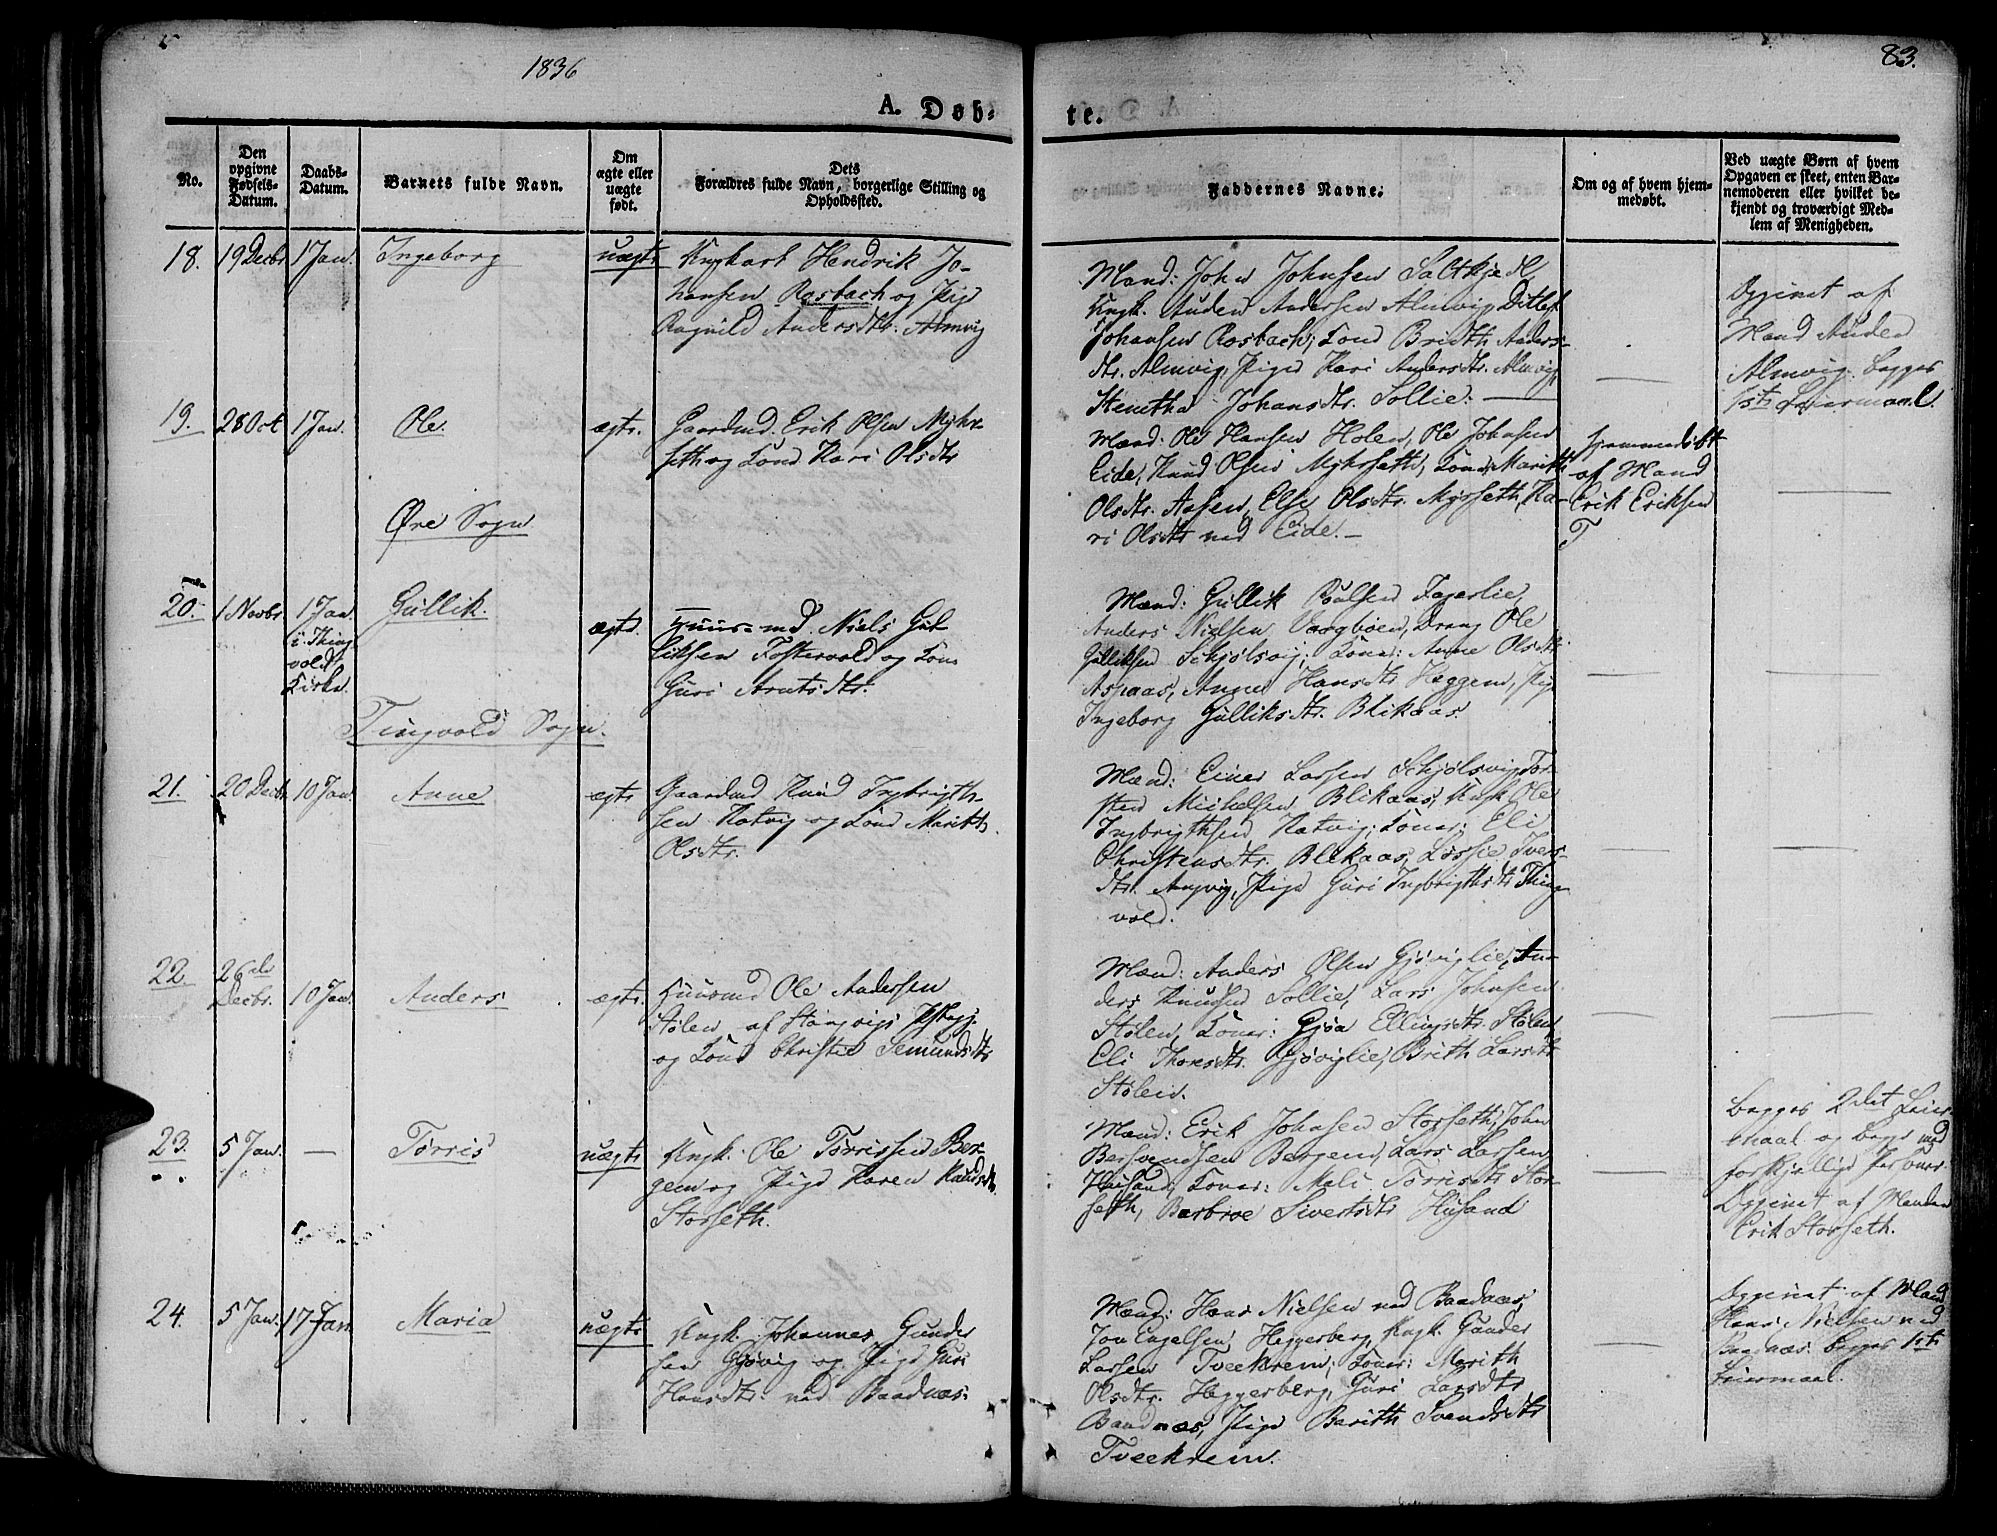 1836
83.
A. Døb-
te.
No.
Den
opgivne
Fødsels-
Datum.
Daabs-
Datum.
Barnets fulde Navn.
Om
ægte eller
uægte
født.
Dets
Forældres fulde Navn, borgerlige Stilling og
Opholdssted.
Faddernes Navne.
Om og af hvem hjem-
medøbt.
Ved uægte Børn af hvem
Opgaven er skeet, enten Bar-
nemoderen eller hvilket be-
kjendt og troværdigt Med-
lem af Menigheden.
18.
19 Decbr
1 Jan.
Ingeborg
uægte
Ungkarl Hendrik Jo-
hansen Rosbach og Pige
Ragnild Andersdtr. Almvig
Mænd: John Johnsen Saltkjel,
Ungk. Auden Andersen Almvig, Ditlef
Johansen Rosbach; Kone Brithe Anders-
dtr. Almvig, Pige Kari Andersdtr. Almvig,
Stenetha Johansdtr. Sollie.
Opgivet af
Mand Auden
Almvig. begges
1ste Leiermaal.
19.
28 Oct
1 Jan.
Ole
ægte.
Gaardmd. Erik Olsen Myhr-
seth og Kone Kari Olsdtr
Mænd: Ole Hansen Holen, Ole Johnsen
Eide, Knud Olsen Myhrseth, Koner Marith
Olsdtr. Aasen, Else Olsdtr. Myrseth, Ka-
ri Olsdtr ned Eide.
hjemmedøbt
af Mand
Erik Eriksen
Øre Sogn
20.
1 Novbr.
1 Jan.
i Thing-
vold
Kirke.
Gullik.
ægte.
Huusmd. Niels Gul-
liksen Fostervold og Kone
Guri Arntsdtr.
Mænd: Gullik Poulsen Fagerlie,
Anders Nielsen Vaagbøen, Dreng Ole
Gulliksen Schjølsvig; Koner: Anne Olsdtr
Aspaas, Anne Hansdtr Heggem, Pige
Ingeborg Gulliksdtr. Blikaas.
Tingvold Sogn.
21.
20 Decbr
10 Jan.
Anne
ægte
Gaardmd Knud Ingbrigth-
sen Hatvig og Kone Marith
Olsdtr.
Mænd: Einer Larsen Schjølsvig, Tor-
sten Michelsen Blikaas, Ungk. Ole
Ingbrigthsen Hatvig; Koner: Eli
Christensdtr. Blikaas, Lossie Ivers-
dtr. Angvig, Pige Guri Ingbrigthsdtr Thing-
vold.
22.
26de
Decbr.
10 Jan.
Anders
ægte.
Huusmd Ole Andersen
Stølen af Stangvigs Pstgj.
og Kone Christie Semundsdtr
Mænd: Anders Olsen Gjøviglie, An-
ders Knudsen Sollie, Lars Johnsen
Stølen, Koner: Gjøa Ellingsdtr. Stølen,
Eli Thoresdtr. Gjøviglie, Brith Larsdtr
Stølen.
23.
5 Jan.
Tørris
uægte
Ungk. Ole Tørrissen Ber-
gem og Pige Karen Knudsdtr.
Storseth.
Mænd: Erik Johnsen Storseth, John
Bersvendsen Bergem, Lars Larsen
Husand, Koner: Mali Tørrisdtr Stor-
seth, Barbroe Sivertsdtr Husand
begges 2det Leier-
maal og begge med
forskjellige Personer.
Opgivet af Manden
Erik Storseth.
24.
5 Jan.
17 Jan.
Maria
uægte
Ungk. Johannes Gunder-
sen Gjøvig og Pige Guri
Hansdtr. ned Baadnæs.
Mænd: Hans Nielsen ned Baadnæs,
Jon Engelsen Heggerberg, Ungk. Gunder
Larsen Tveekrem; Koner: Marith
Olsdtr. Heggerberg, Guri Larsdtr
Baadnæs, Pige Barith Svendsdtr
Tveekrem.
Opgivet af Mand
Hans Nielsen ned
Baadnæs. begges 1ste
Leiermaal.